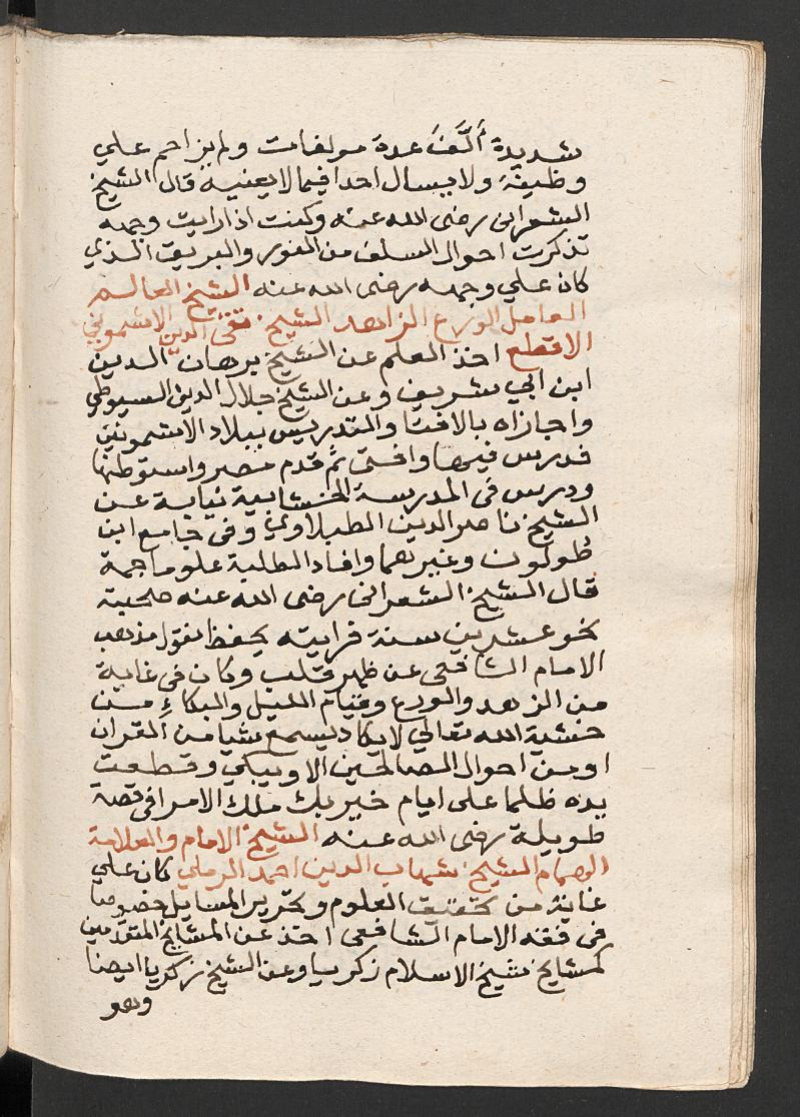 شديدة ألَّفَ عدة مولفات ولم يزاحم علي
وظيفة ولا يسال احدا فيما لا يعنيه قال الشيخ
الشعرانى رضى الله عنه وكنت اذا رايت وجهه
تذكرت احوال السلف من النور والبريق الذي
كان علي وجهه رضى الله عنه الشيخ العالم
العامل الورع الزاهد الشيخ تقى الدين الاشموني
الاقطع اخذ العلم عن الشيخ برهان الدين
ابن ابي شريف وعن الشيخ جلال الدين السيوطي
واجازاه بالافتا والتدريس ببلاد الاشمونين
فدرس فيها وافتى ثم قدم مصر واستوطنها
ودرس فى المدرسة الخشابية نيابة عن
الشيخ ناصر الدين الطبلاوي وفى جامع ابن
طولون وغيرهما وافاد الطلبة علوما جمة
قال الشيخ الشعرانى رضى الله عنه صحبته
نحو عشرين سنة فرايته يحفظ نقول مذهب
الامام الشافعى عن ظهر قلب وكان فى غاية
من الزهد والورع وقيام الليل والبكاءِ من
خشية الله تعالي لا يكاد يسمع شيا من القران
او من احوال الصالحين الا ويبكي وقطعت
يده ظلما على ايام خير بك ملك الامرا فى قصة
طويلة رضى الله عنه الشيخ الامام والعلامة
الهمام الشيخ شهاب الدين احمد الرملي كان علي
غاية من تحقيق العلوم وتحرير المسايل خصوصا
فى فقه الامام الشافعى اخذ عن المشايخ المتقدمين
كمشايخ شيخ الاسلام زكريا وعن الشيخ زكريا ايضا
وهو